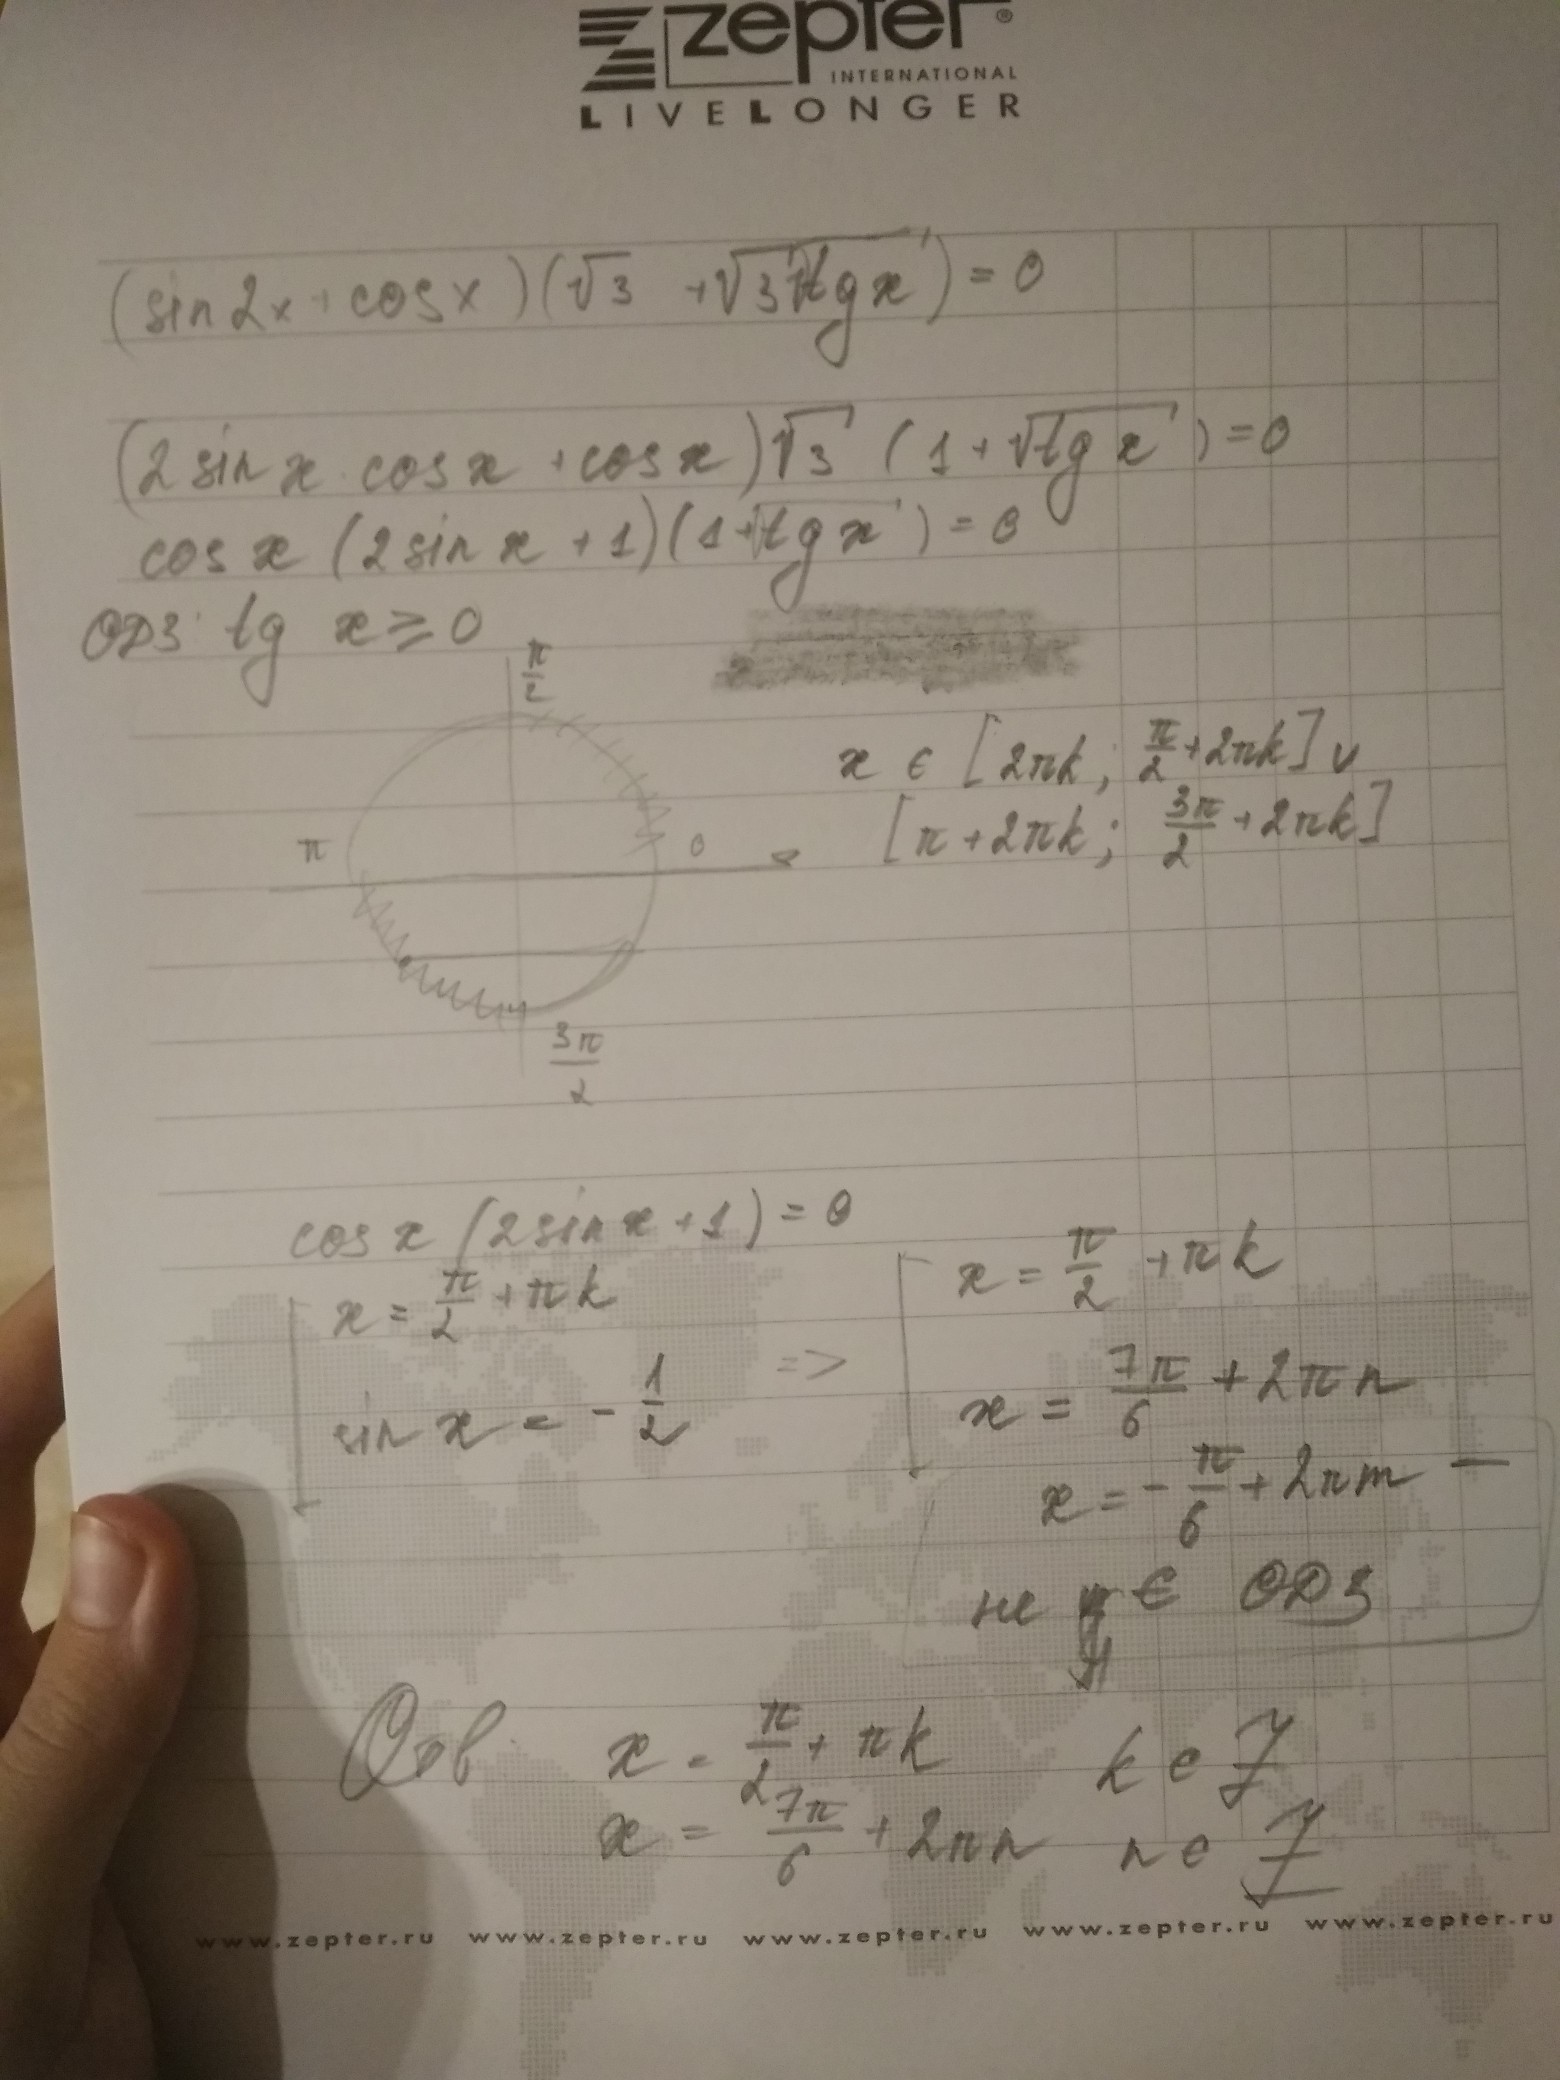 zepter®
INTERNATIONAL
LIVE LONGER
(sin2x + cosx)(√3 + √3√tgx) = 0
(2sinx·cosx + cosx)√3 (1 + √tgx) = 0
cosx (2sinx + 1)(1 + √tgx) = 0
ОДЗ: tg x ≥ 0
π/2
x ∈ [2πk; π/2 + 2πk] ∪
[π + 2πk; 3π/2 + 2πk]
π 0
3π/2
cosx (2sinx + 1) = 0
x = π/2 + πk
sinx = -1/2
=>
x = π/2 + πk
x = 7π/6 + 2πn
x = -π/6 + 2πm —
не ∈ ОДЗ
Отв. x = π/2 + πk k ∈ Z
x = 7π/6 + 2πn n ∈ Z
www.zepter.ru www.zepter.ru www.zepter.ru www.zepter.ru www.zepter.ru